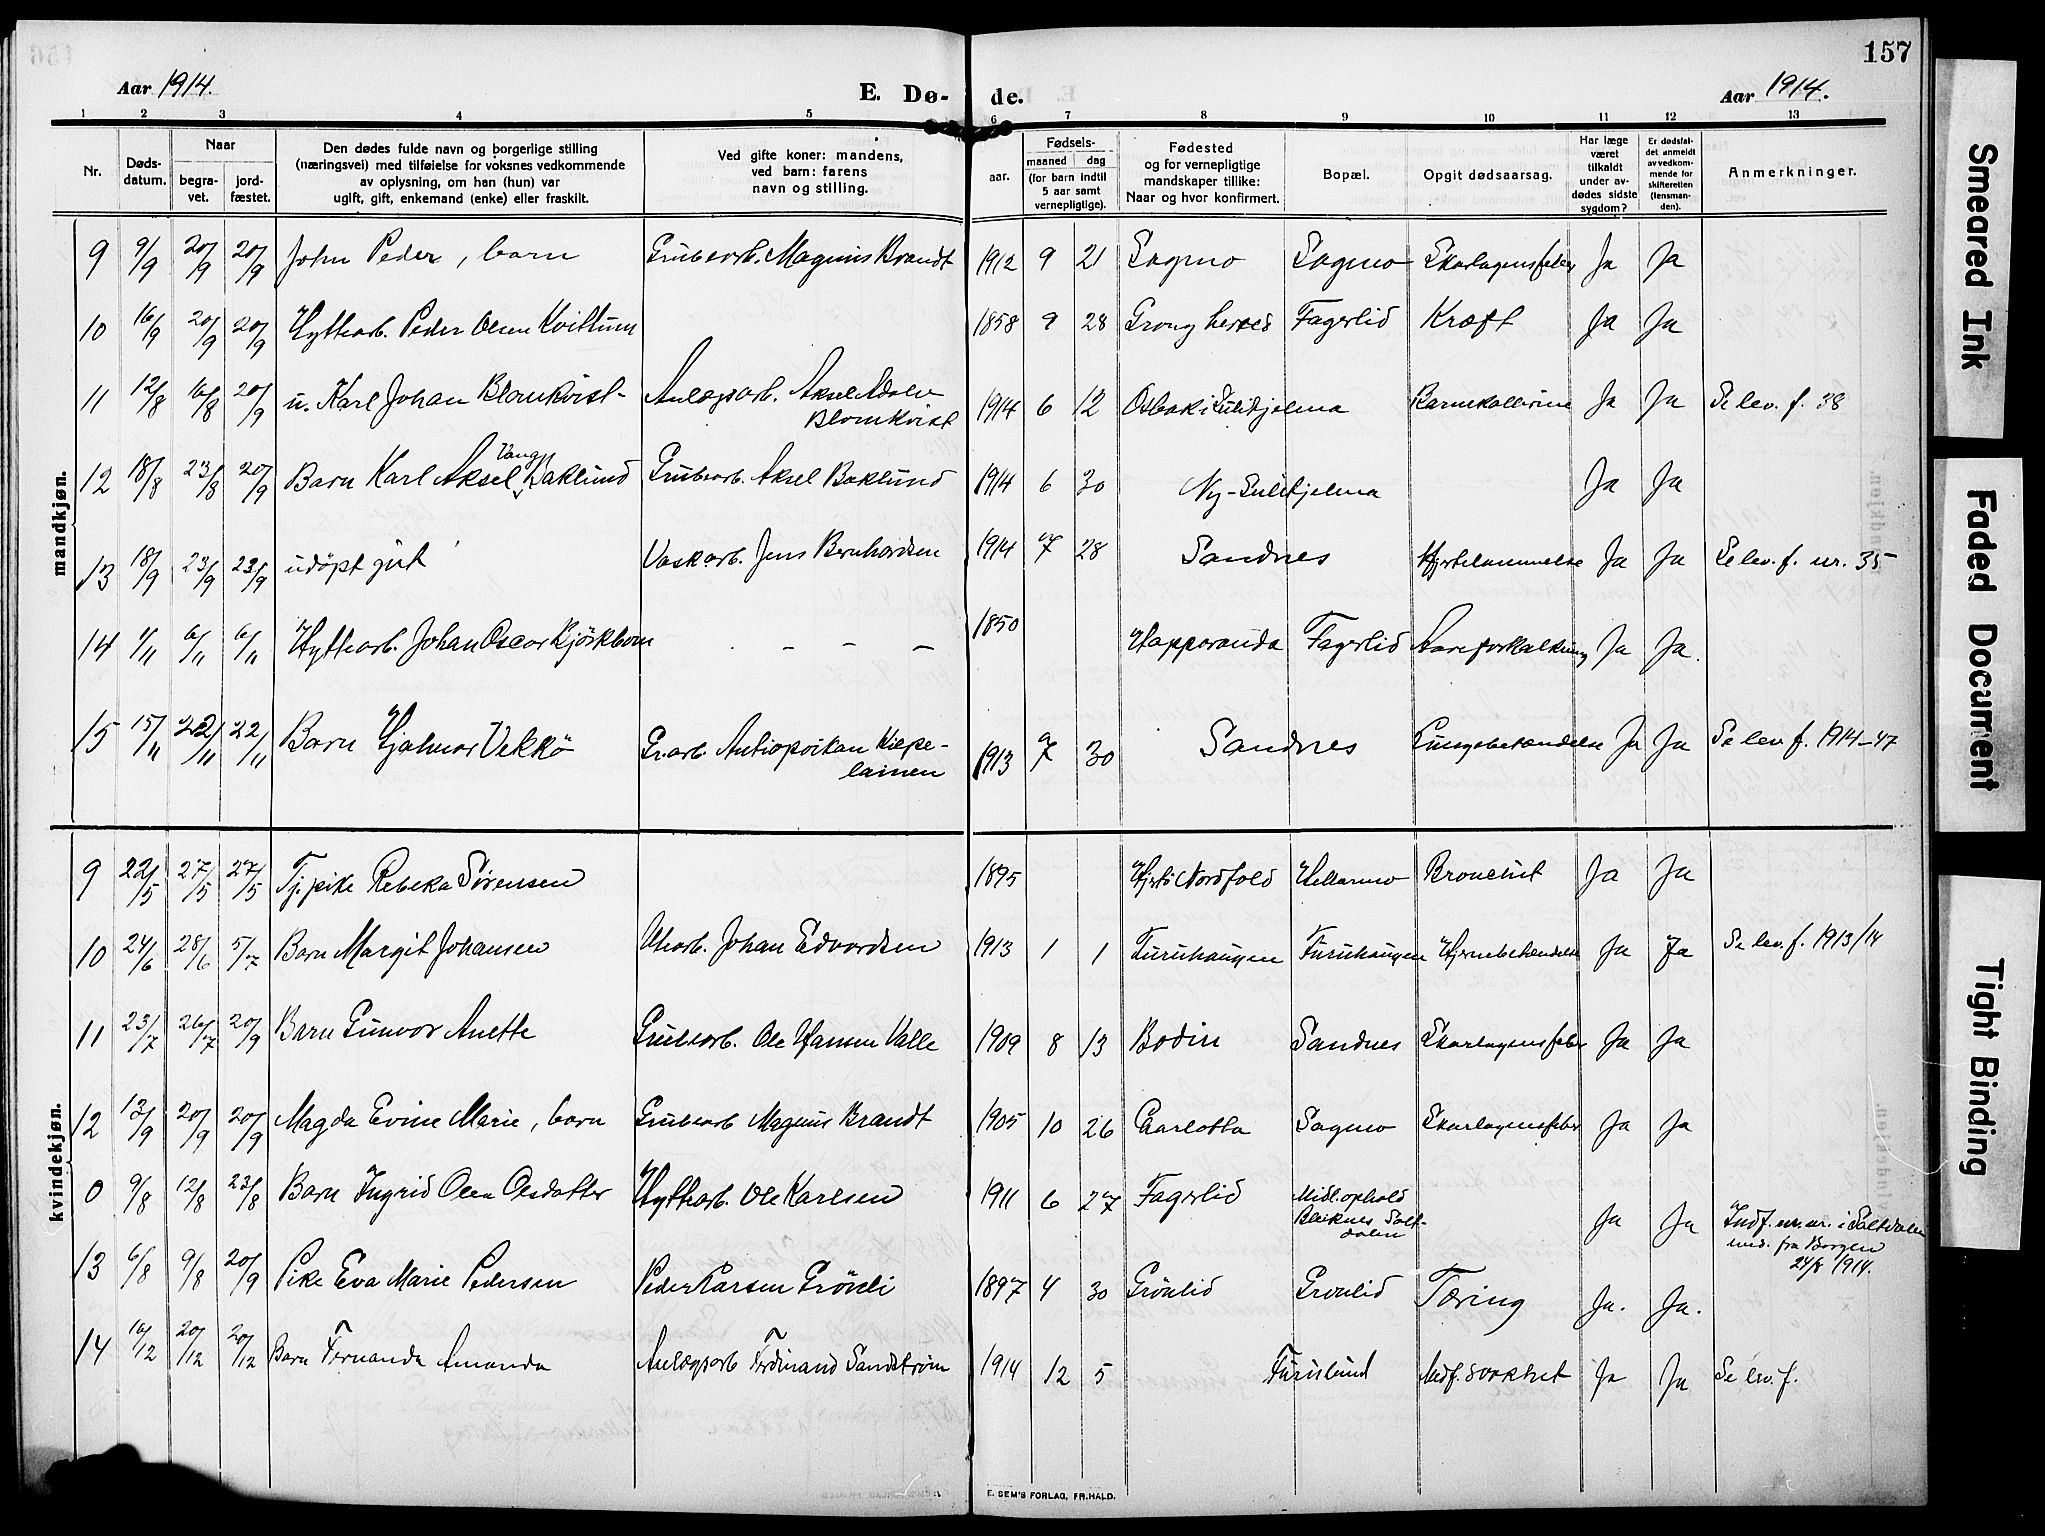 157
Aar 1914.
E. Dø- de.
Aar 1914.
1 2 3 4 5 6 7 8 9 10 11 12 13
Nr.
Døds-
datum.
Naar
begra-
vet.
jord-
fæstet.
Den dødes fulde navn og borgerlige stilling
(næringsvei) med tilføielse for voksnes vedkommende
av oplysning, om han (hun) var
ugift, gift, enkemand (enke) eller fraskilt.
Ved gifte koner: mandens,
ved barn: farens
navn og stilling.
aar.
Fødsels-
maaned dag
(for barn indtil
5 aar samt
vernepligtige).
Fødested
og for vernepligtige
mandskaper tillike:
Naar og hvor konfirmert.
Bopæl.
Opgit dødsaarsag.
Har læge
været
tilkaldt
under av-
dødes sidste
sygdom?
Er dødsfal-
det anmeldt
av vedkom-
mende for
skifteretten
(lensman-
den).
Anmerkninger.
mandkjøn.
9 9/9 20/9 20/9 John Peder, barn Grubearb. Magnus Brandt 1912 9 21 Sagmo Sagmo Skarlagensfeber Ja Ja
10 16/9 20/9 20/9 Hyttearb. Peder Olsen Kvittum 1858 9 28 Grong herred Fagerlid Kræft Ja Ja
11 12/8 16/8 20/9 u. Karl Johan Blomkvist Anlægsarb. Aksel Adolv
Blomkvist 1914 6 12 Osbak i Sulitjelma Barnekolerine Ja Ja Se lev. f. 38
12 18/8 23/8 20/9 Barn Karl Aksel Vang Baklund Grubearb. Aksel Baklund 1914 6 30 Ny-Sulitjelma Ja Ja
13 18/9 23/9 23/9 udöpt gut Vaskarb. Jens Bernhardsen 1914 7 28 Sandnes Hjertelammelse Ja Ja Se lev. f. nr. 35
14 1/11 6/11 6/11 Hyttearb. Johan Oscar Björkbom - - - 1850 Happaranda Fagerlid Aareforkalkning Ja Ja.
15 15/11 22/11 22/11 Barn Hjalmar Vekkö Gr.arb. Antiopoikan Kiepe-
lainen 1913 9 7 30 Sandnes Lungebetændelse Ja Ja Se lev. f. 1914-47
kvindekjøn.
9 22/5 27/5 27/5 Tj. pike Rebeka Sørensen 1895 Nordfold Hellarmo Bronchit Ja Ja
10 24/6 28/6 5/7 Barn Margit Johansen Johan Edvardsen 1913 1 1 Furuhaugen Furuhaugen Hjernebetændelse Ja Ja Se lev. f. 1913/14
11 23/7 26/7 20/9 Barn Gunvor Anette Grubearb. Ole Hansen Valle 1909 8 13 Bodin Sandnes Skarlagensfeber Ja Ja
12 13/9 20/9 20/9 Magda Evine Marie, barn Grubearb Magnus Brandt 1905 10 26 Charlotta Sagmo Skarlagensfeber Ja Ja
0 9/8 12/8 23/8 Barn Ingrid Olea Olsdatter Hyttearb. Ole Karlsen 1911 6 27 Fagerlid Midl. ophold
Bleiknes Salt-
dalen Ja Ja Indf. u. nr. i Saltdalen
med. fra Borgen
24/8 1914.
13 6/8 9/8 20/9 Pike Eva Marie Pedersen Peder Larsen Grönli 1897 4 30 Grönlid Grönlid Tæring Ja. Ja.
14 16/12 20/12 20/12 Barn Fernanda Amanda Anlægsarb Ferdinand Sandstrøm 1914 12 5 Furulund Medf. svakhet Ja Ja Se lev. f.
E. SEM'S FORLAG, FR.HALD.
Smeared Ink
Faded Document
Tight Binding